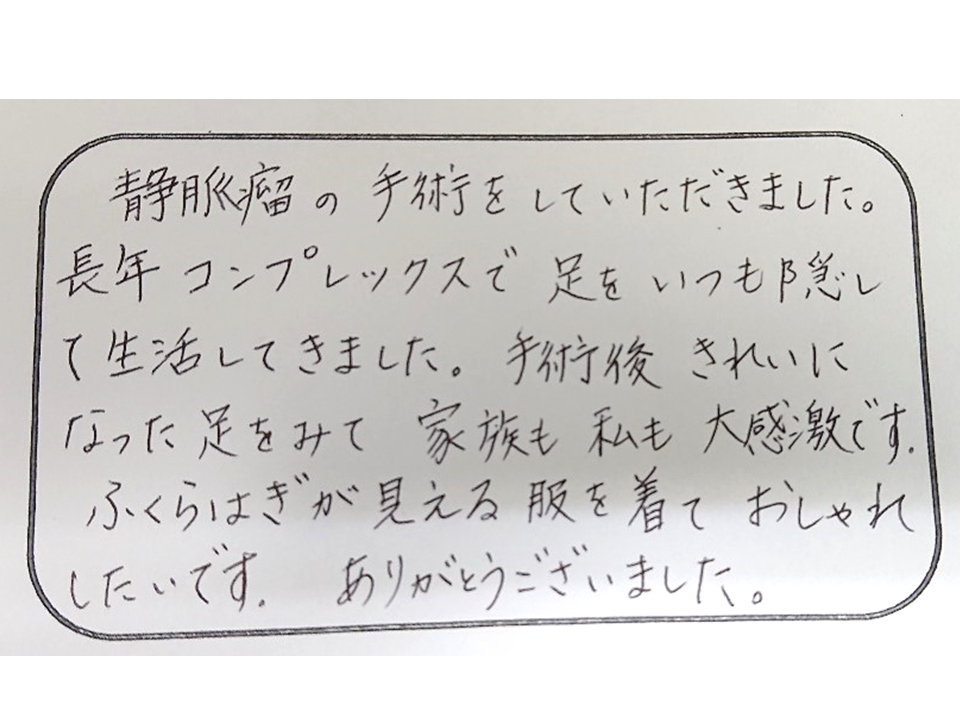 静脈瘤の手術をしていただきました。
長年コンプレックスで足をいつも隠し
て生活してきました。手術後きれいに
なった足をみて家族も私も大感激です.
ふくらはぎが見える服を着ておしゃれ
したいです.ありがとうございました。